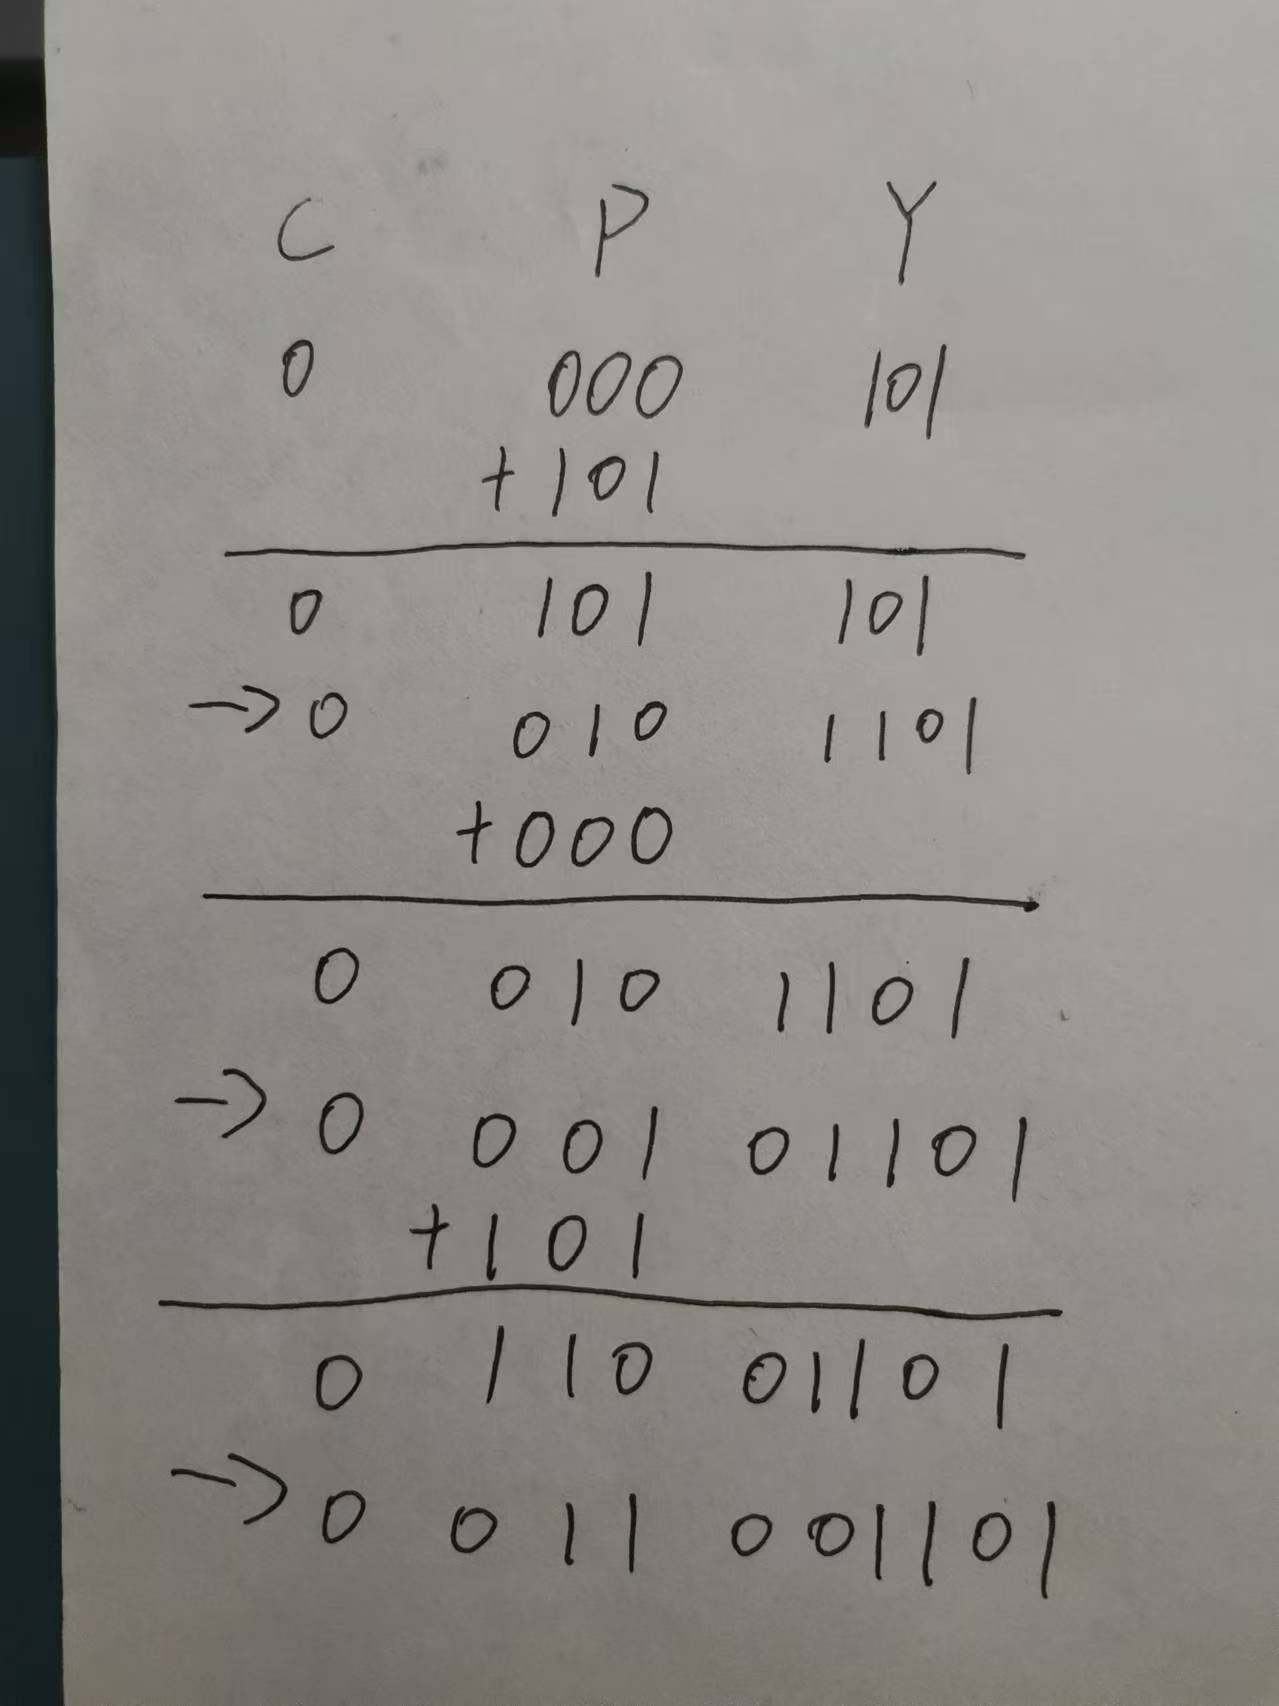 C P Y
0 000 101
+101
0 101 101
→0 010 1101
+000
0 010 1101
→0 001 01101
+101
0 110 01101
→0 011 001101